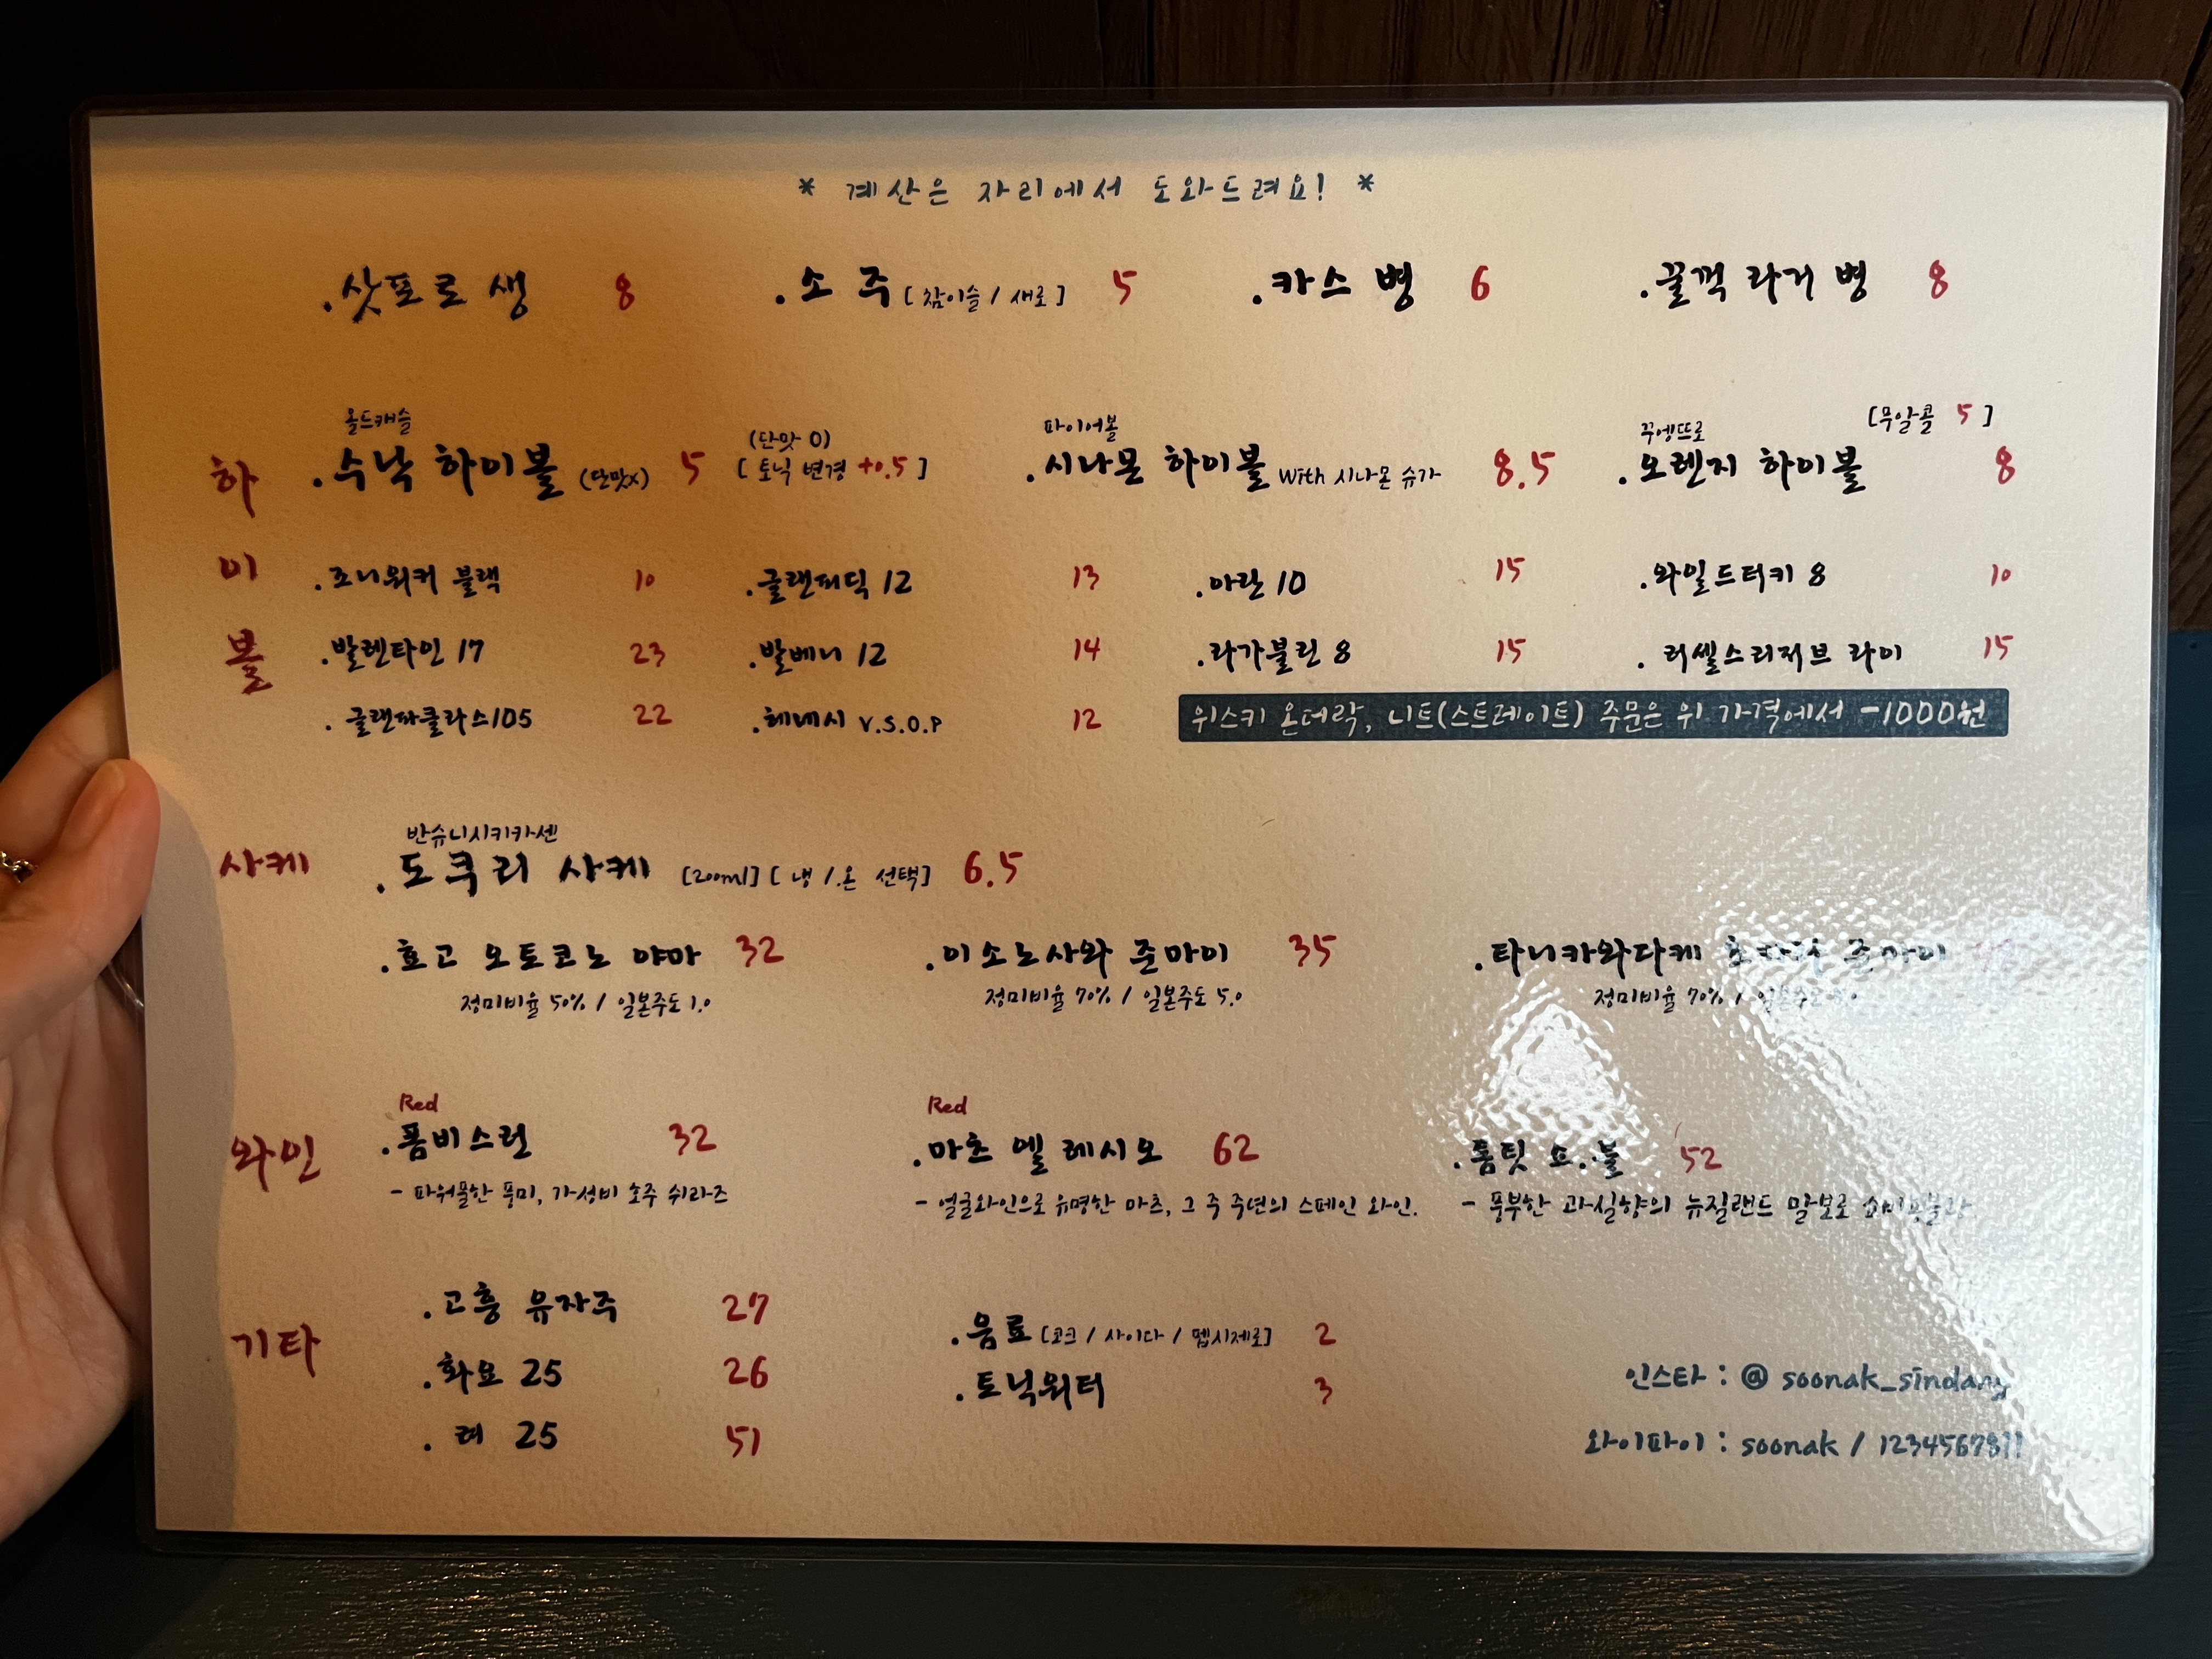 * 계산은 자리에서 도와드려요! *
.삿포로 생 8 .소주 [참이슬 / 새로] 5 .카스 병 6 .꿀꺽 라거 병 8
하이볼
올드캐슬
.수낙 하이볼 (단맛x) 5 (단맛 O) [토닉 변경 +0.5]
파이어볼
.시나몬 하이볼 With 시나몬 슈가 8.5
꾸엥뜨로 [무알콜 5]
.오렌지 하이볼 8
.조니워커 블랙 10 .글랜피딕 12 13 .아란 10 15 .와일드터키 8 10
.발렌타인 17 23 .발베니 12 14 .라가불린 8 15 .러셀스리저브 라이 15
.글랜파클라스105 22 .헤네시 V.S.O.P 12
위스키 온더락, 니트(스트레이트) 주문은 위 가격에서 -1000원
사케
반슈니시키카센
.도쿠리 사케 [200ml] [냉 / 온 선택] 6.5
.효고 오토코노 야마 32 .이소노사와 준마이 35 .타니카와다케 준마이
정미비율 50% / 일본주도 1.0 정미비율 70% / 일본주도 5.0 정미비율 70% /
와인
Red
.품비스런 32
- 파워풀한 풍미, 가성비 호주 쉬라즈
Red
.마츠 엘 레시오 62
- 얼굴와인으로 유명한 마츠, 그 중 중년의 스페인 와인.
.통팃 쇼.블 52
- 풍부한 과실향의 뉴질랜드 말보로 쇼비뇽블랑
기타
.고흥 유자주 27
.화요 25 26
.려 25 51
.음료 [코크 / 사이다 / 펩시제로] 2
.토닉워터 3
인스타 : @ soonak_sindang
와이파이 : soonak / 1234567811